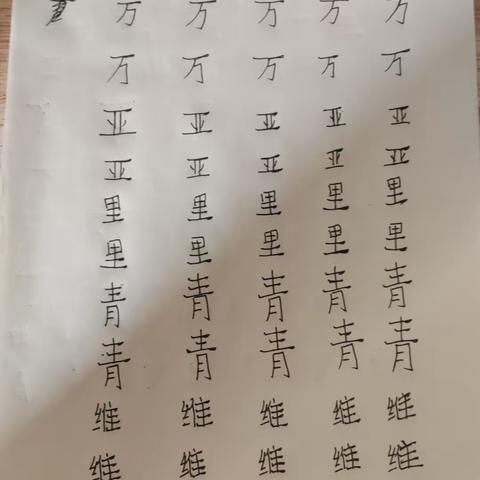 万 万 万 万 万
万 万 万 万 万
亚 亚 亚 亚 亚
亚 亚 亚 亚 亚
里 里 里 里 里
里 里 里 里 里
青 青 青 青 青
青 青 青 青 青
维 维 维 维 维
维 维 维 维 维